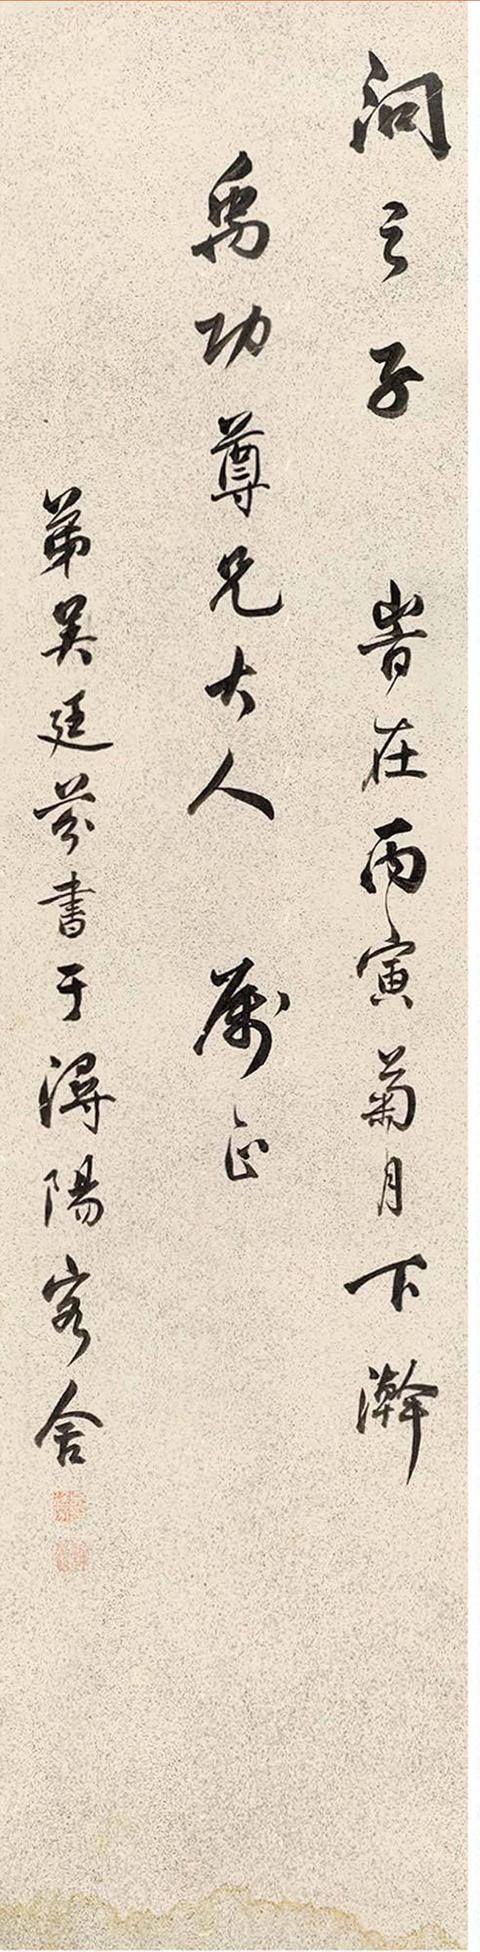 问之子 旹在丙寅菊月下澣
禹功尊兄大人 属正
弟吴廷芬書于潯陽客舍